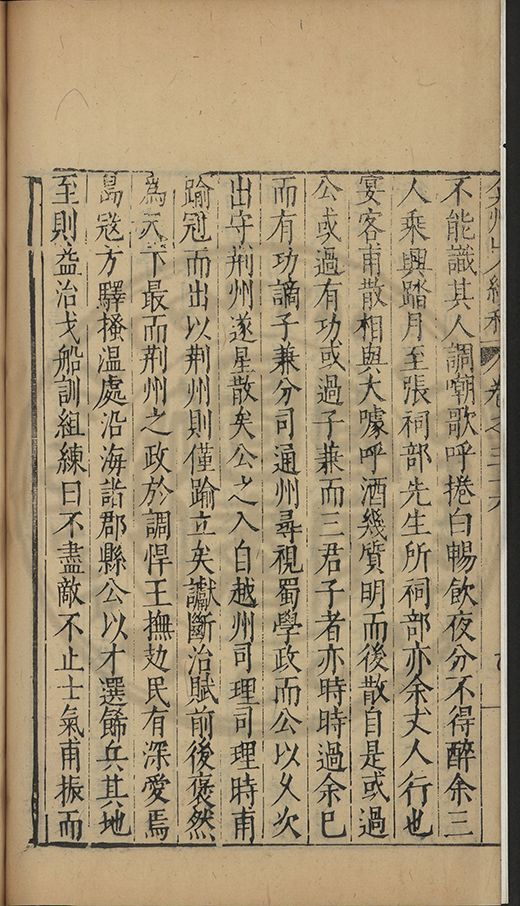 弇州山人續稿 卷之三十六
不能識其人調嘲歌呼捲白暢飲夜分不得醉余三
人乘興踏月至張祠部先生所祠部亦余丈人行也
宴客甫散相與大噱呼酒幾質明而後散自是或過
公或過有功或過子兼而三君子者亦時時過余已
而有功謫子兼分司通州尋視蜀學政而公以久次
出守荆州遂星散矣公之入自越州司理司理時甫
踰冠而出以荆州則僅踰立矣讞斷治賦前後褎然
為天下最而荆州之政於調悍王撫攰民有深愛焉
島寇方驛搔溫處沿海諸郡縣公以才選飭兵其地
至則益治戈船訓組練曰不盡敵不止士氣甫振而